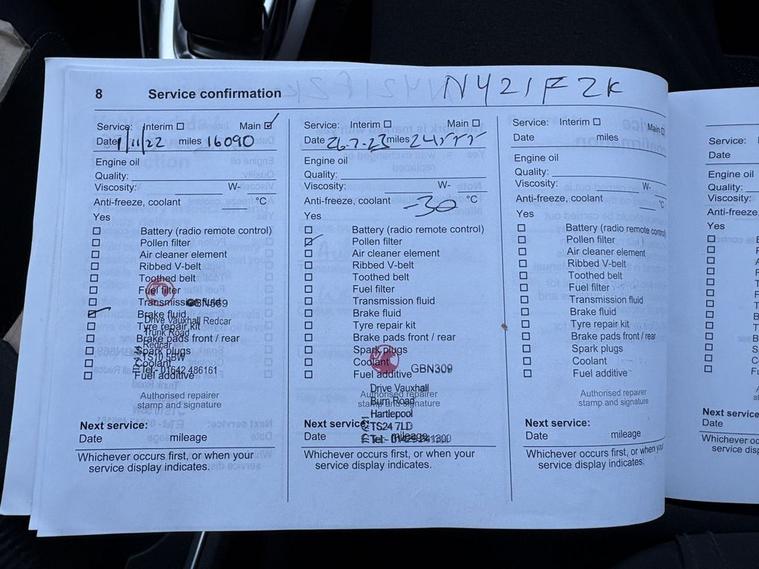 8 Service confirmation N421FZK
Service: Interim Main
Date 1/11/22 miles 16090
Engine oil
Quality:
Viscosity: W-
Anti-freeze, coolant °C
Yes
Battery (radio remote control)
Pollen filter
Air cleaner element
Ribbed V-belt
Toothed belt
Fuel filter
Transmission fluid
GBN569
Brake fluid
Drive Vauxhall Redcar
Tyre repair kit
Trunk Road
Brake pads front / rear
Redcar
Spark plugs
TS10 5BW
Coolant
Tel:- 01642 486161
Fuel additive
Authorised repairer
stamp and signature
Next service:
Date mileage
Whichever occurs first, or when your
service display indicates.
Service: Interim Main
Date 26-7-23 miles
Engine oil
Quality:
Viscosity: W-
Anti-freeze, coolant -30 °C
Yes
Battery (radio remote control)
Pollen filter
Air cleaner element
Ribbed V-belt
Toothed belt
Fuel filter
Transmission fluid
Brake fluid
Tyre repair kit
Brake pads front / rear
Spark plugs
Coolant
GBN309
Fuel additive
Drive Vauxhall
Authorised repairer
Burn Road
stamp and signature
Hartlepool
Next service:
TS24 7LD
Date mileage
Tel:-
Whichever occurs first, or when your
service display indicates.
Service: Interim Main
Date miles
Engine oil
Quality:
Viscosity: W-
Anti-freeze, coolant °C
Yes
Battery (radio remote control)
Pollen filter
Air cleaner element
Ribbed V-belt
Toothed belt
Fuel filter
Transmission fluid
Brake fluid
Tyre repair kit
Brake pads front / rear
Spark plugs
Coolant
Fuel additive
Authorised repairer
stamp and signature
Next service:
Date mileage
Whichever occurs first, or when your
service display indicates.
Service:
Date
Engine oil
Quality:
Viscosity:
Anti-freeze,
Yes
Next service:
Date
Whichever occ
service disp